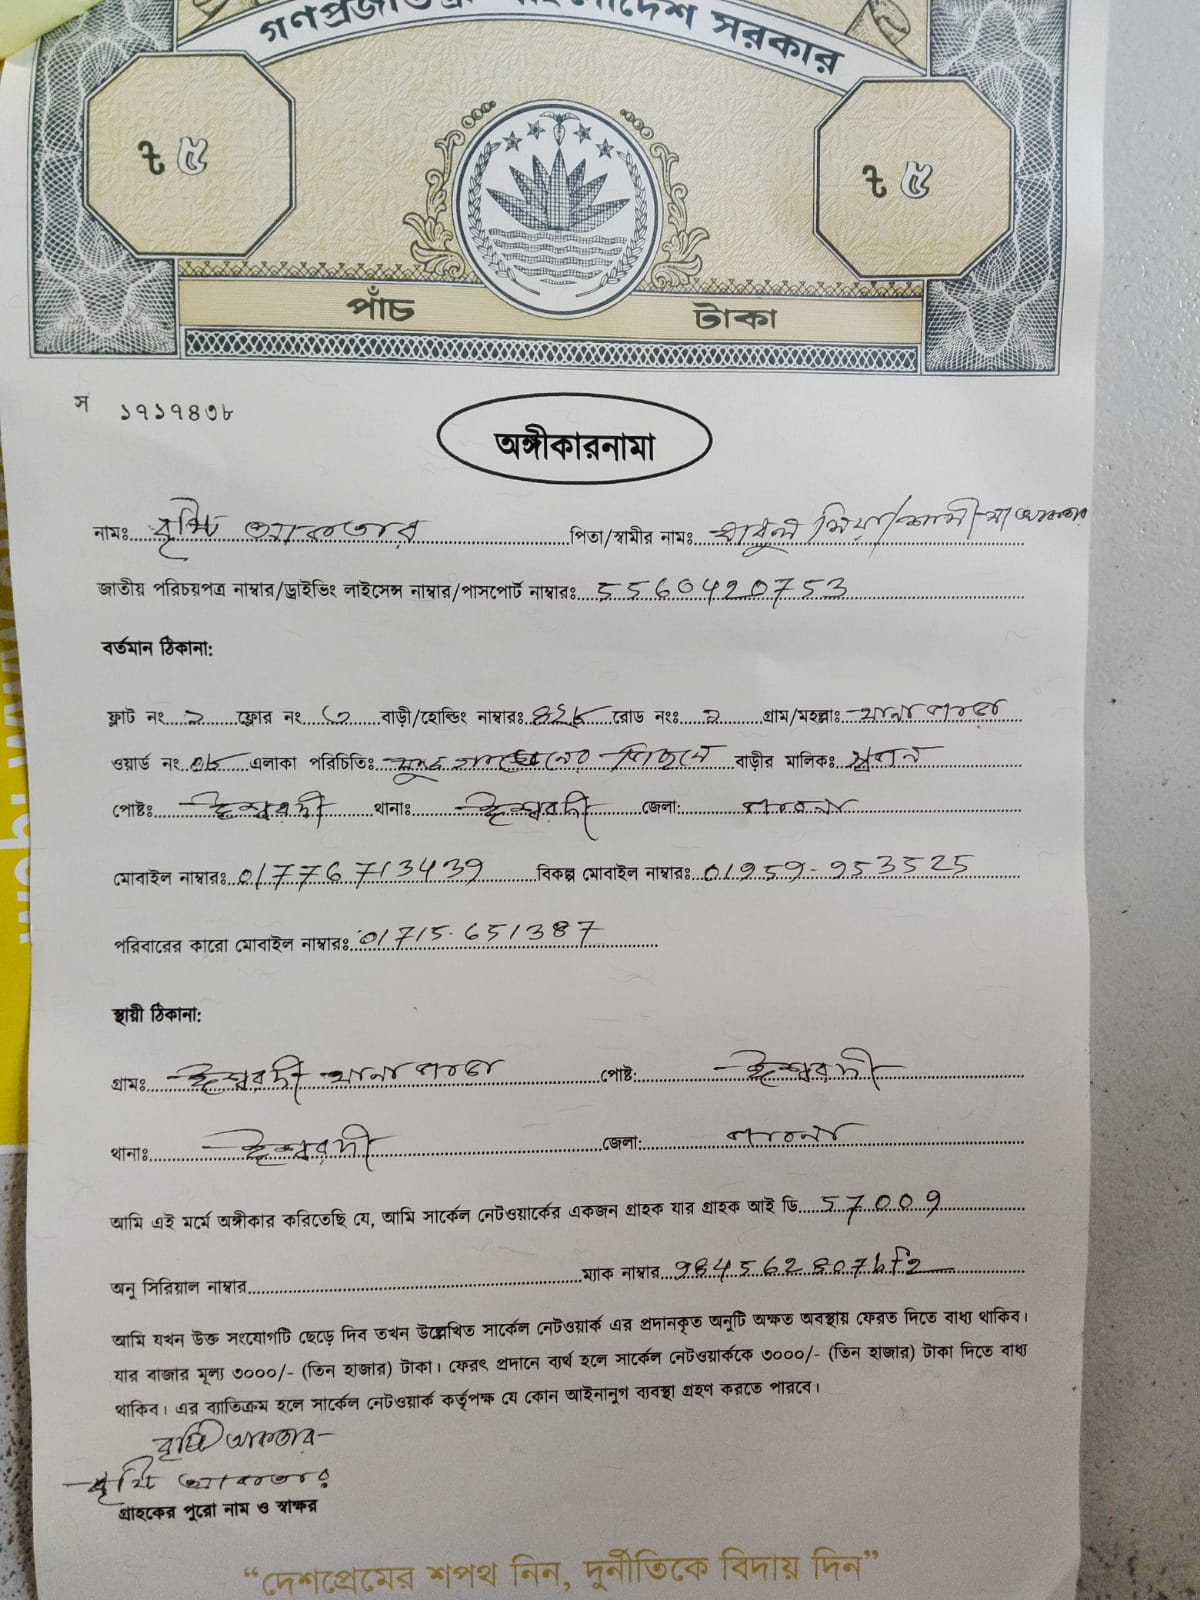 গণপ্রজাতন্ত্রী বাংলাদেশ সরকার
৳ ৫ ৳ ৫
পাঁচ টাকা
স ১৭১৭৪৩৮
অঙ্গীকারনামা
নামঃ বৃষ্টি আকতার পিতা/স্বামীর নামঃ বাবুল মিয়া/স্বামী
জাতীয় পরিচয়পত্র নাম্বার/ড্রাইভিং লাইসেন্স নাম্বার/পাসপোর্ট নাম্বারঃ 5560420753
বর্তমান ঠিকানা:
ফ্লাট নং ২ ফ্লোর নং ৩ বাড়ী/হোল্ডিং নাম্বারঃ রোড নংঃ ২ গ্রাম/মহল্লাঃ থানা পাড়া
ওয়ার্ড নং ০৮ এলাকা পরিচিতিঃ পিছনে বাড়ীর মালিকঃ
পোষ্টঃ ঈশ্বরদী থানাঃ ঈশ্বরদী জেলা: পাবনা
মোবাইল নাম্বারঃ 01776713439 বিকল্প মোবাইল নাম্বারঃ 01959-953525
পরিবারের কারো মোবাইল নাম্বারঃ 01715-651387
স্থায়ী ঠিকানা:
গ্রামঃ ঈশ্বরদী থানা পাড়া পোষ্ট: ঈশ্বরদী
থানাঃ ঈশ্বরদী জেলা: পাবনা
আমি এই মর্মে অঙ্গীকার করিতেছি যে, আমি সার্কেল নেটওয়ার্কের একজন গ্রাহক যার গ্রাহক আই ডি 57009
অনু সিরিয়াল নাম্বার ম্যাক নাম্বার 984562807bf2
আমি যখন উক্ত সংযোগটি ছেড়ে দিব তখন উল্লেখিত সার্কেল নেটওয়ার্ক এর প্রদানকৃত অনুটি অক্ষত অবস্থায় ফেরত দিতে বাধ্য থাকিব।
যার বাজার মূল্য ৩০০০/- (তিন হাজার) টাকা। ফেরৎ প্রদানে ব্যর্থ হলে সার্কেল নেটওয়ার্ককে ৩০০০/- (তিন হাজার) টাকা দিতে বাধ্য
থাকিব। এর ব্যতিক্রম হলে সার্কেল নেটওয়ার্ক কর্তৃপক্ষ যে কোন আইনানুগ ব্যবস্থা গ্রহণ করতে পারবে।
বৃষ্টি আকতার
বৃষ্টি আকতার
গ্রাহকের পুরো নাম ও স্বাক্ষর
“দেশপ্রেমের শপথ নিন, দুর্নীতিকে বিদায় দিন”